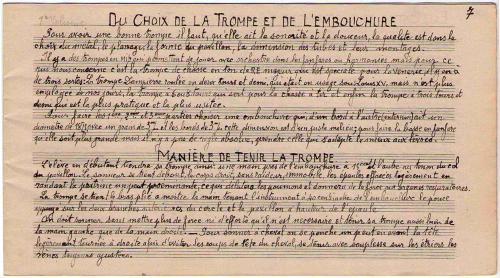 7
DU CHOIX DE LA TROMPE ET DE L'EMBOUCHURE
Pour avoir une bonne trompe il faut, qu'elle ait la sonorité et la douceur, la qualité est dans le
choix du métal, le planage, la forme du pavillon, la dimension des tubes et leur montage.
Il y a des trompes en permettant de jouer avec orchestre dans les fanfares ou harmonies mais pour ce
qui nous concerne c'est la trompe de chasse en ton de RÉ majeur qui est spéciale pour la vénerie, il y en a
de trois sortes. La trompe Dampierre roulée en deux tours et demi était en usage sous Louis XV, mais n'est plus
employée de nos jours, la trompe à tours qui sert pour la chasse à tir et enfin la trompe à trois tours et
demi qui est la plus pratique et la plus usitée.
Pour faire les et parties choisir une embouchure qui, d'un bord à l'autre extérieur, fait un
diamètre de un peu de et les bonds de cette dimension est d'un juste milieu, pour faire la basse en fanfare
qu'elle soit plus grande mais il n'y a pas de règle absolue, prendre celle qui s'adapte le mieux aux lèvres.
MANIÈRE DE TENIR LA TROMPE
L'élève en débutant tiendra sa trompe ainsi: une main près de l'embouchure à l'autre au tenon du col
du pavillon. Le sonneur se tient debout, le corps droit, sans raideur, immobile, les épaules effacées légèrement en
rendant la poitrine un peu proéminente, ce qui dilatera les poumons et donnera de la force aux organes respiratoires.
La trompe se tient le bras plié à moitié, la main tenant l'embouchure à de l'embouchure le pouce
appuyé sur les deux branches du cercle et le pavillon à hauteur de l'épaule.
On doit sonner, sans mettre plus de force ni d'effort qu'il n'est nécessaire et tenir sa trompe aussi bien de
la main gauche que de la main droite. Pour sonner à cheval on se penche un peu en avant la tête
légèrement tournée à droite afin d'éviter les coups de tête du cheval, se tenir avec souplesse sur les étriers les
rênes toujours ajustées.